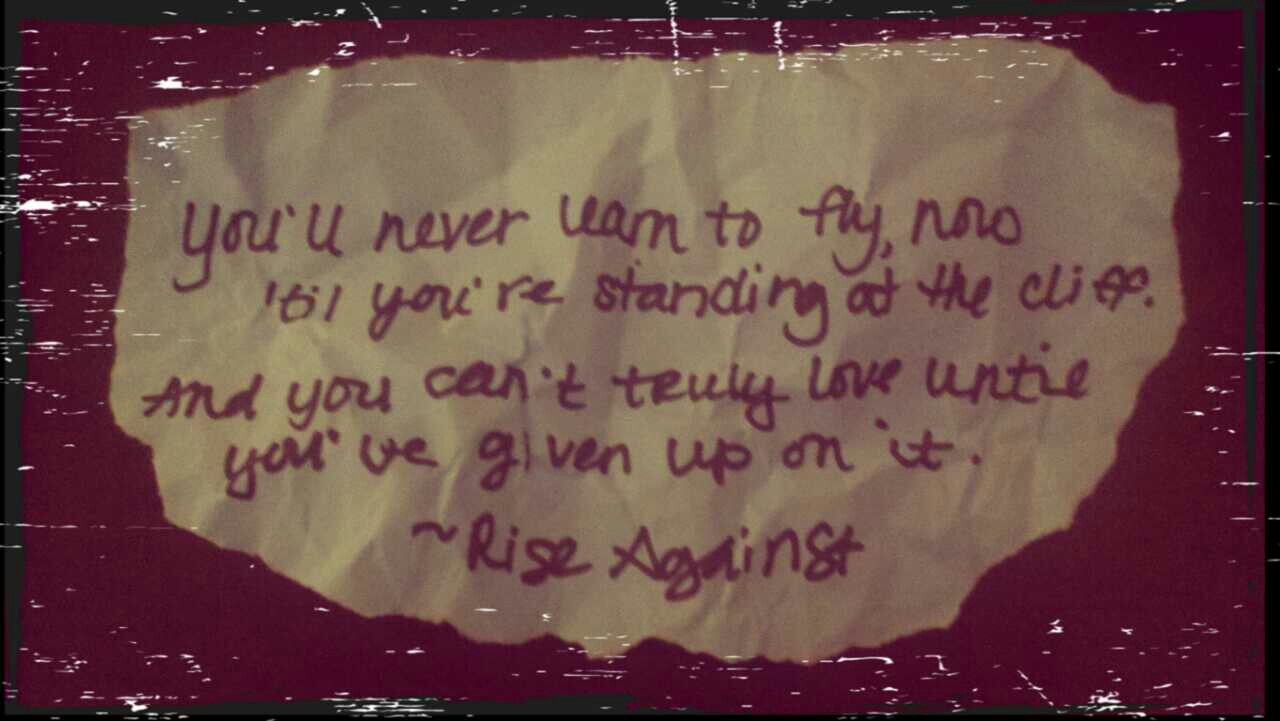 You'll never learn to fly, now
'til you're standing at the cliff.
And you can't truly love until
you've given up on it.
~Rise Against